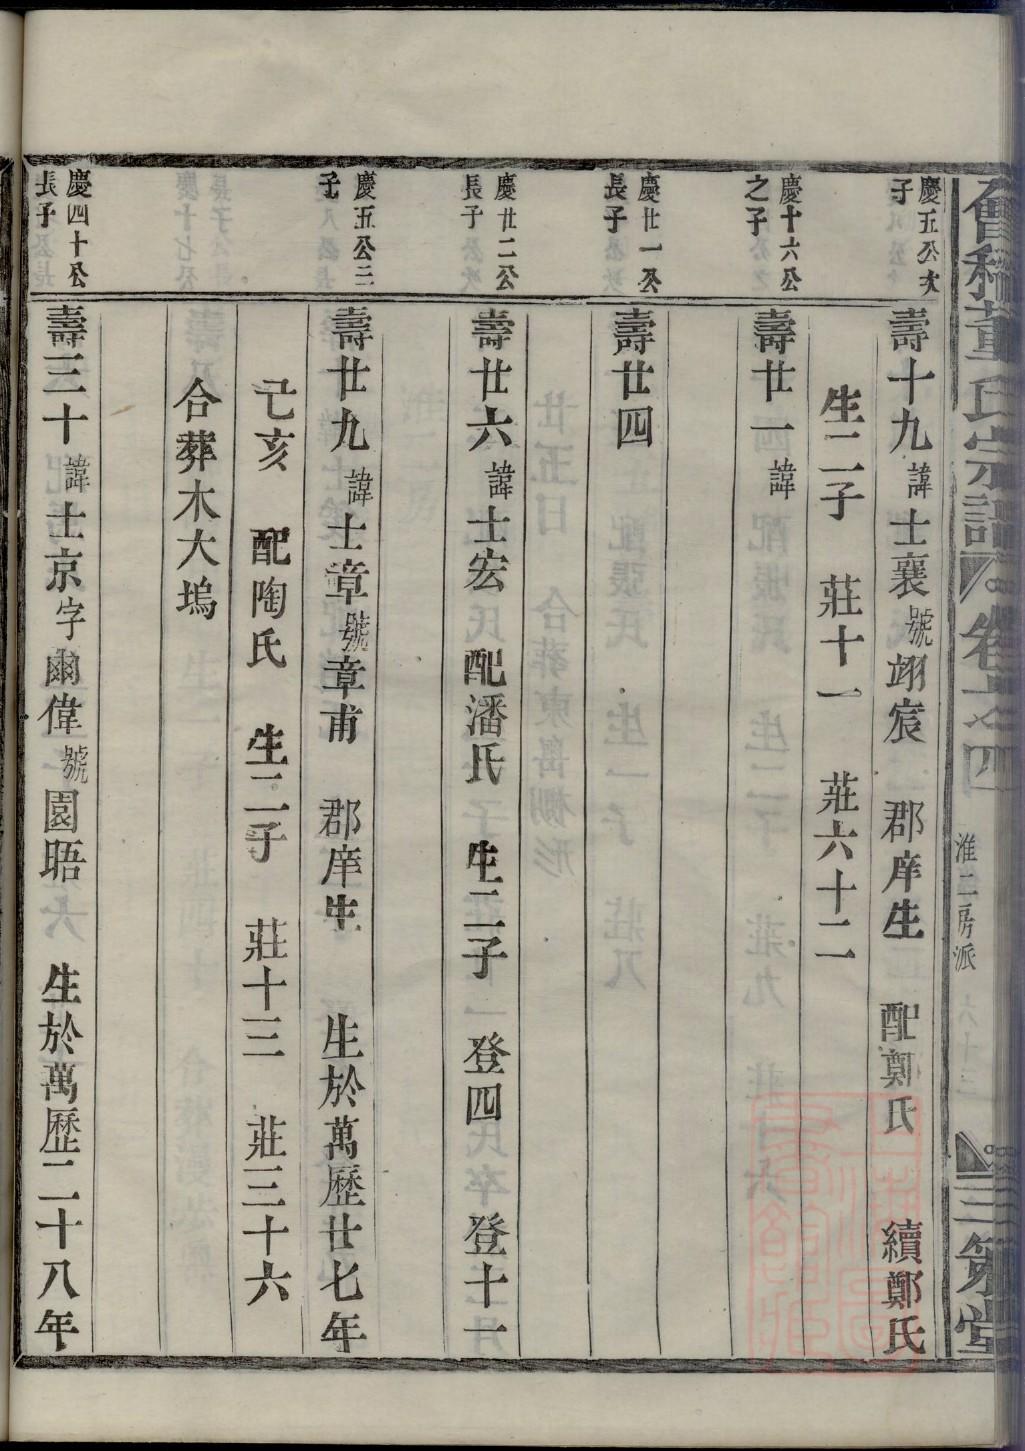 會稽董氏宗譜
卷之四
淮二房派
三策堂
慶五公次
子
壽十九諱士襄號翊宸 郡庠生 配鄭氏 續鄭氏
生二子 莊十一 莊六十二
慶十六公
之子
壽廿一諱
慶廿一公
長子
壽廿四
慶廿二公
長子
壽廿六諱士宏 配潘氏 生二子 登四 登十一
慶五公三
子
壽廿九諱士章號章甫 郡庠生 生於萬歷廿七年
己亥 配陶氏 生二子 莊十三 莊三十六
合葬木大塢
慶四十公
長子
壽三十諱士京字爾偉號園晤 生於萬歷二十八年